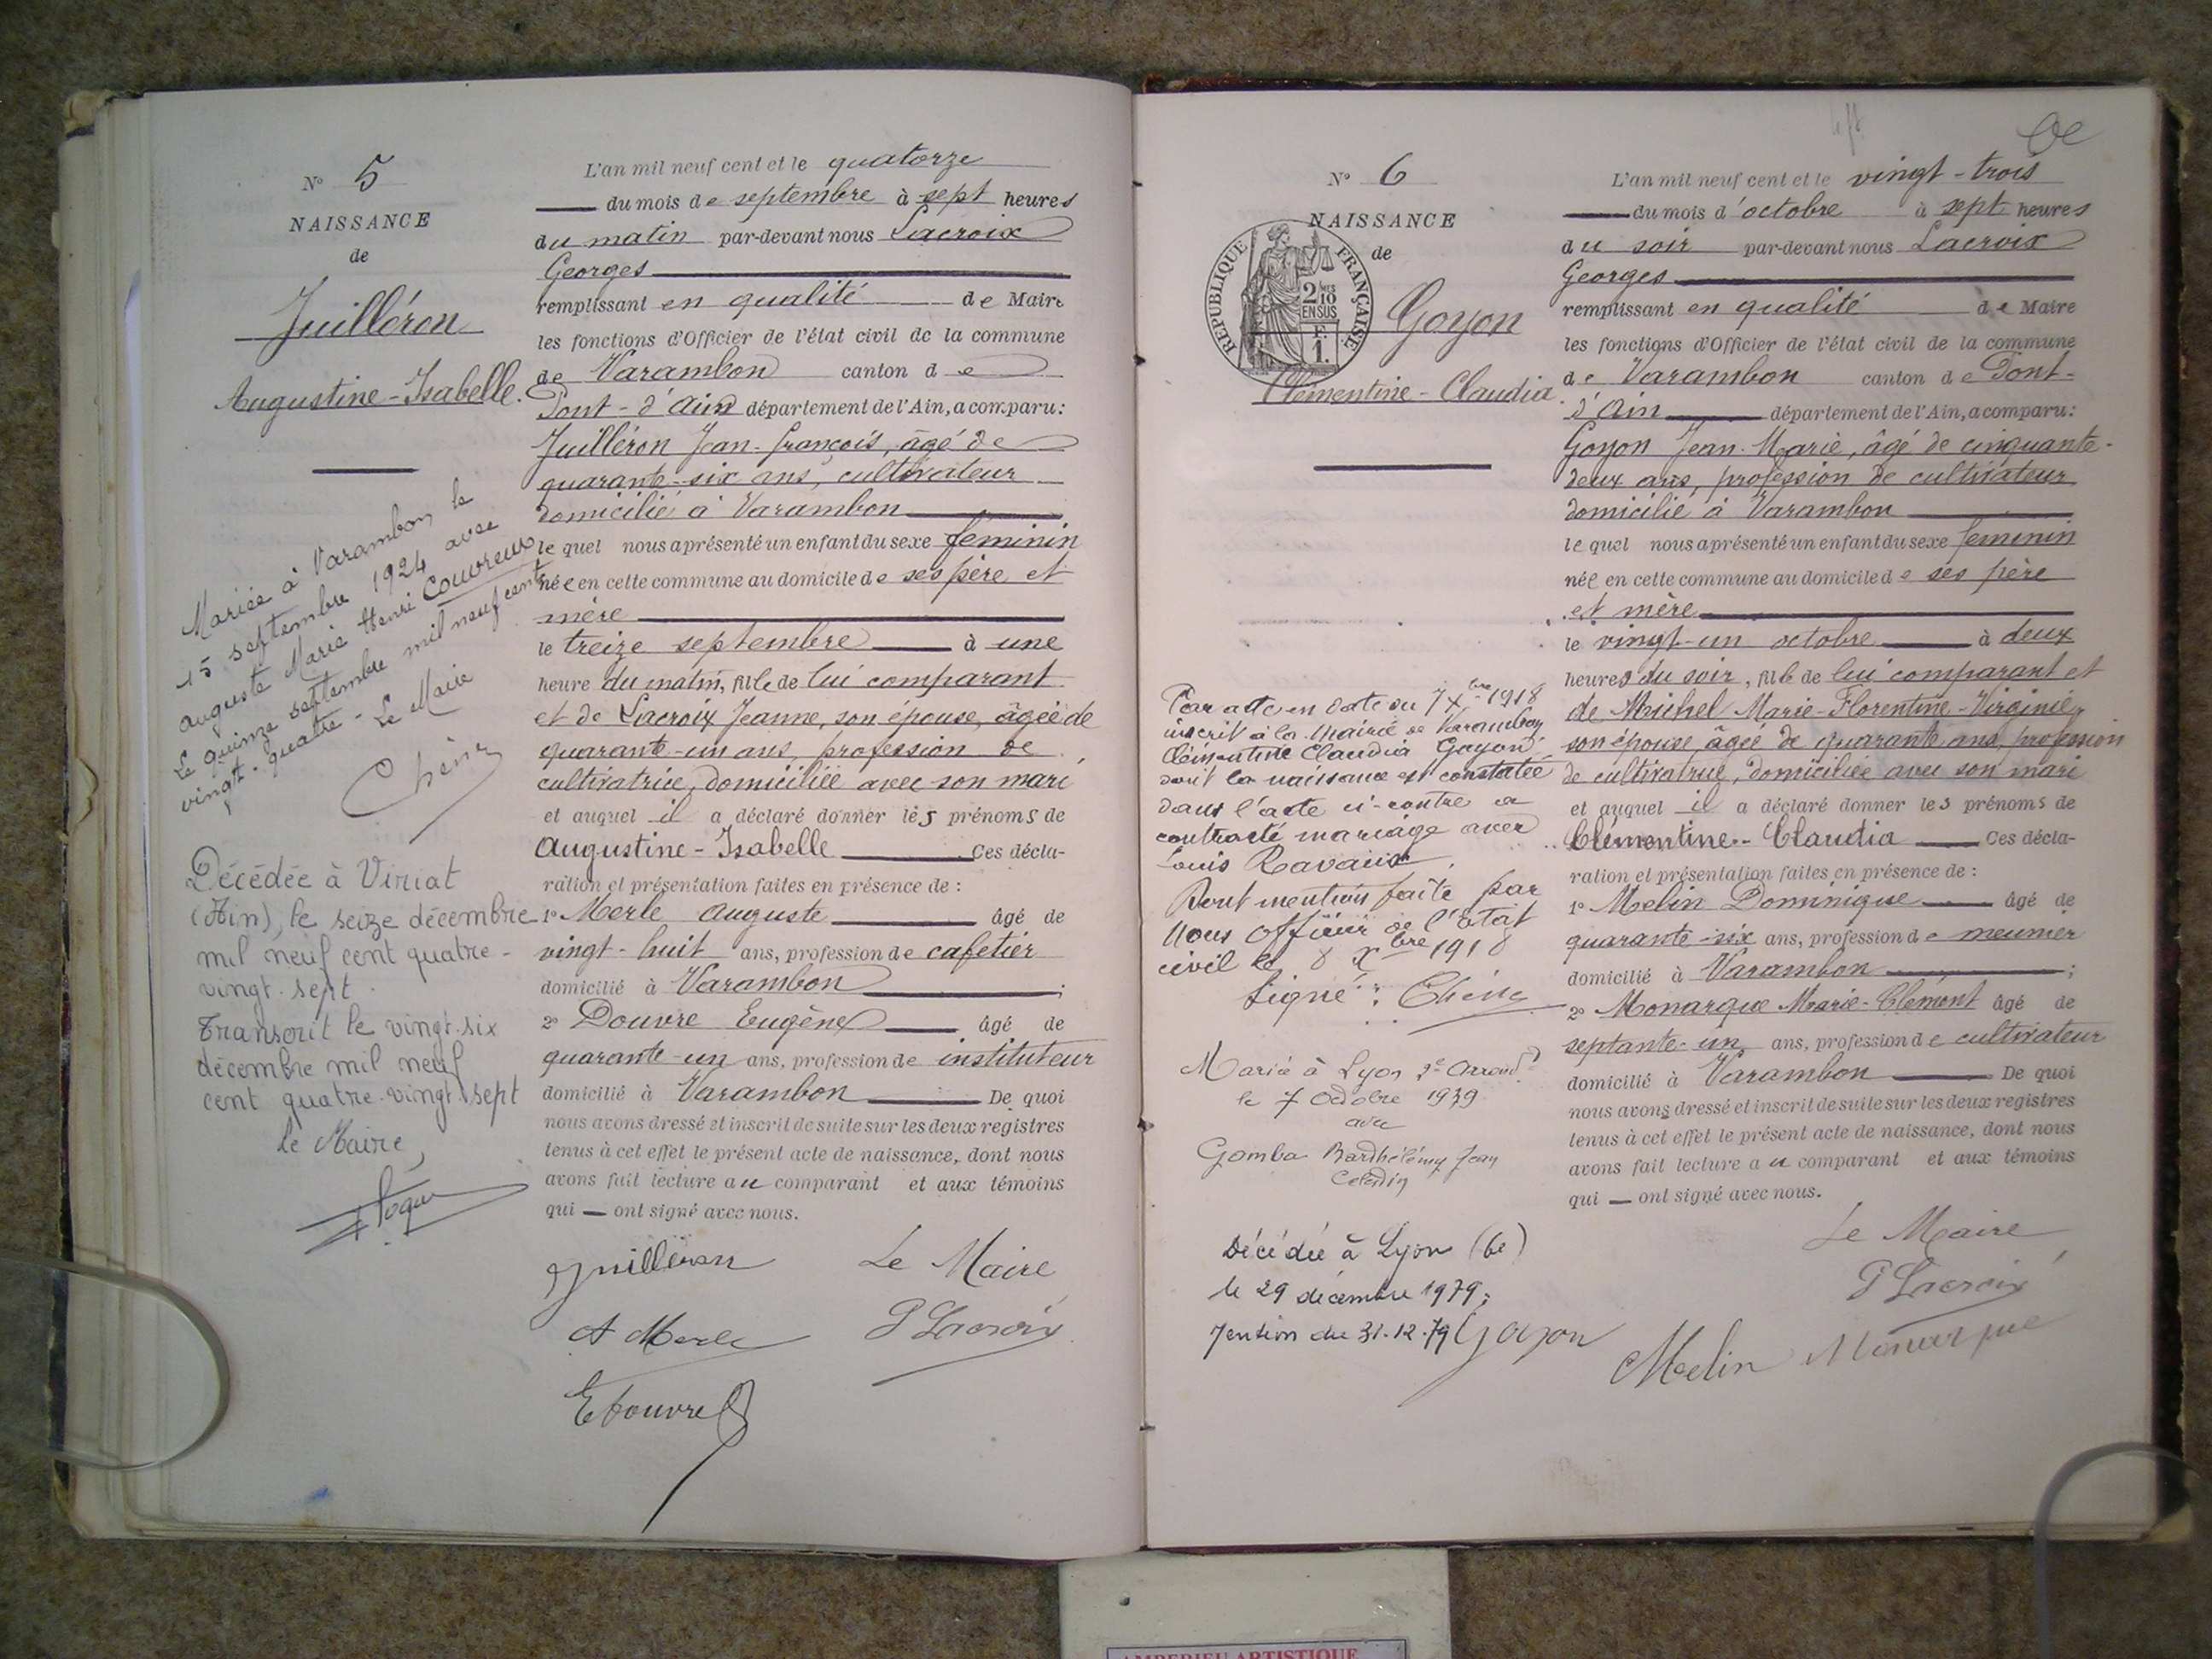 N° 5
NAISSANCE
de
Juilléron
Augustine-Isabelle.
Mariée à Varambon le
15 septembre 1924 avec
Auguste Marie Henri Couvreux
Le quinze septembre mil neuf cent
vingt-quatre - Le Maire
Chêne
Décédée à Viriat
(Ain), le seize décembre
mil neuf cent quatre-
vingt-sept.
Transcrit le vingt-six
décembre mil neuf
cent quatre-vingt-sept
Le Maire,
L'an mil neuf cent et le quatorze
du mois de septembre à sept heures
du matin par-devant nous Lacroix
Georges
remplissant en qualité de Maire
les fonctions d'Officier de l'état civil de la commune
de Varambon canton de
Pont-d'Ain département de l'Ain, a comparu:
Juilléron Jean-François, âgé de
quarante-six ans, cultivateur
domicilié à Varambon
lequel nous a présenté un enfant du sexe féminin
née en cette commune au domicile de ses père et
mère
le treize septembre à une
heure du matin, fille de lui comparant
et de Lacroix Jeanne, son épouse, âgée de
quarante-un ans profession de
cultivatrice, domiciliée avec son mari
et auquel il a déclaré donner les prénoms de
Augustine-Isabelle Ces décla-
ration et présentation faites en présence de :
1° Merle Auguste âgé de
vingt-huit ans, profession de cafetier
domicilié à Varambon ;
2° Douvre Eugène âgé de
quarante-un ans, profession de instituteur
domicilié à Varambon De quoi
nous avons dressé et inscrit de suite sur les deux registres
tenus à cet effet le présent acte de naissance, dont nous
avons fait lecture au comparant et aux témoins
qui — ont signé avec nous.
Juilléron Le Maire
A Merle G Lacroix
E Douvre
N° 6
NAISSANCE
de
REPUBLIQUE FRANÇAISE
2/10
EN SUS
F.
1.
Goyon
Clémentine-Claudia.
Par acte en date du 7 Xbre 1918
inscrit à la Mairie de Varambon
Clémentine Claudia Goyon
dont la naissance est constatée
dans l'acte ci-contre a
contracté mariage avec
Louis Ravaux.
Dont mention faite par
Nous officier de l'état
civil le 8 Xbre 1918
Signé : Chêne
Marié à Lyon 2e Arrondt
le 7 Octobre 1939
avec
Gomba Barthélémy Jean
Célestin
Décédée à Lyon (6e)
le 29 décembre 1979;
Mention du 31.12.79
6e
L'an mil neuf cent et le vingt-trois
du mois d'octobre à sept heures
du soir par-devant nous Lacroix
Georges
remplissant en qualité de Maire
les fonctions d'Officier de l'état civil de la commune
de Varambon canton de Pont-
d'Ain département de l'Ain, a comparu:
Goyon Jean-Marie, âgé de cinquante-
deux ans, profession de cultivateur
domicilié à Varambon
lequel nous a présenté un enfant du sexe féminin
née en cette commune au domicile de ses père
et mère
le vingt-un octobre à deux
heures du soir, fille de lui comparant et
de Michel Marie-Florentine-Virginie,
son épouse, âgée de quarante ans, profession
de cultivatrice, domiciliée avec son mari
et auquel il a déclaré donner les prénoms de
Clémentine-Claudia Ces décla-
ration et présentation faites en présence de :
1° Melin Dominique âgé de
quarante-six ans, profession de meunier
domicilié à Varambon ;
2° Monarque Marie-Clément âgé de
septante-un ans, profession de cultivateur
domicilié à Varambon De quoi
nous avons dressé et inscrit de suite sur les deux registres
tenus à cet effet le présent acte de naissance, dont nous
avons fait lecture au comparant et aux témoins
qui — ont signé avec nous.
Le Maire
G Lacroix
Goyon Melin Monarque
AMBERIEU ARTISTIQUE